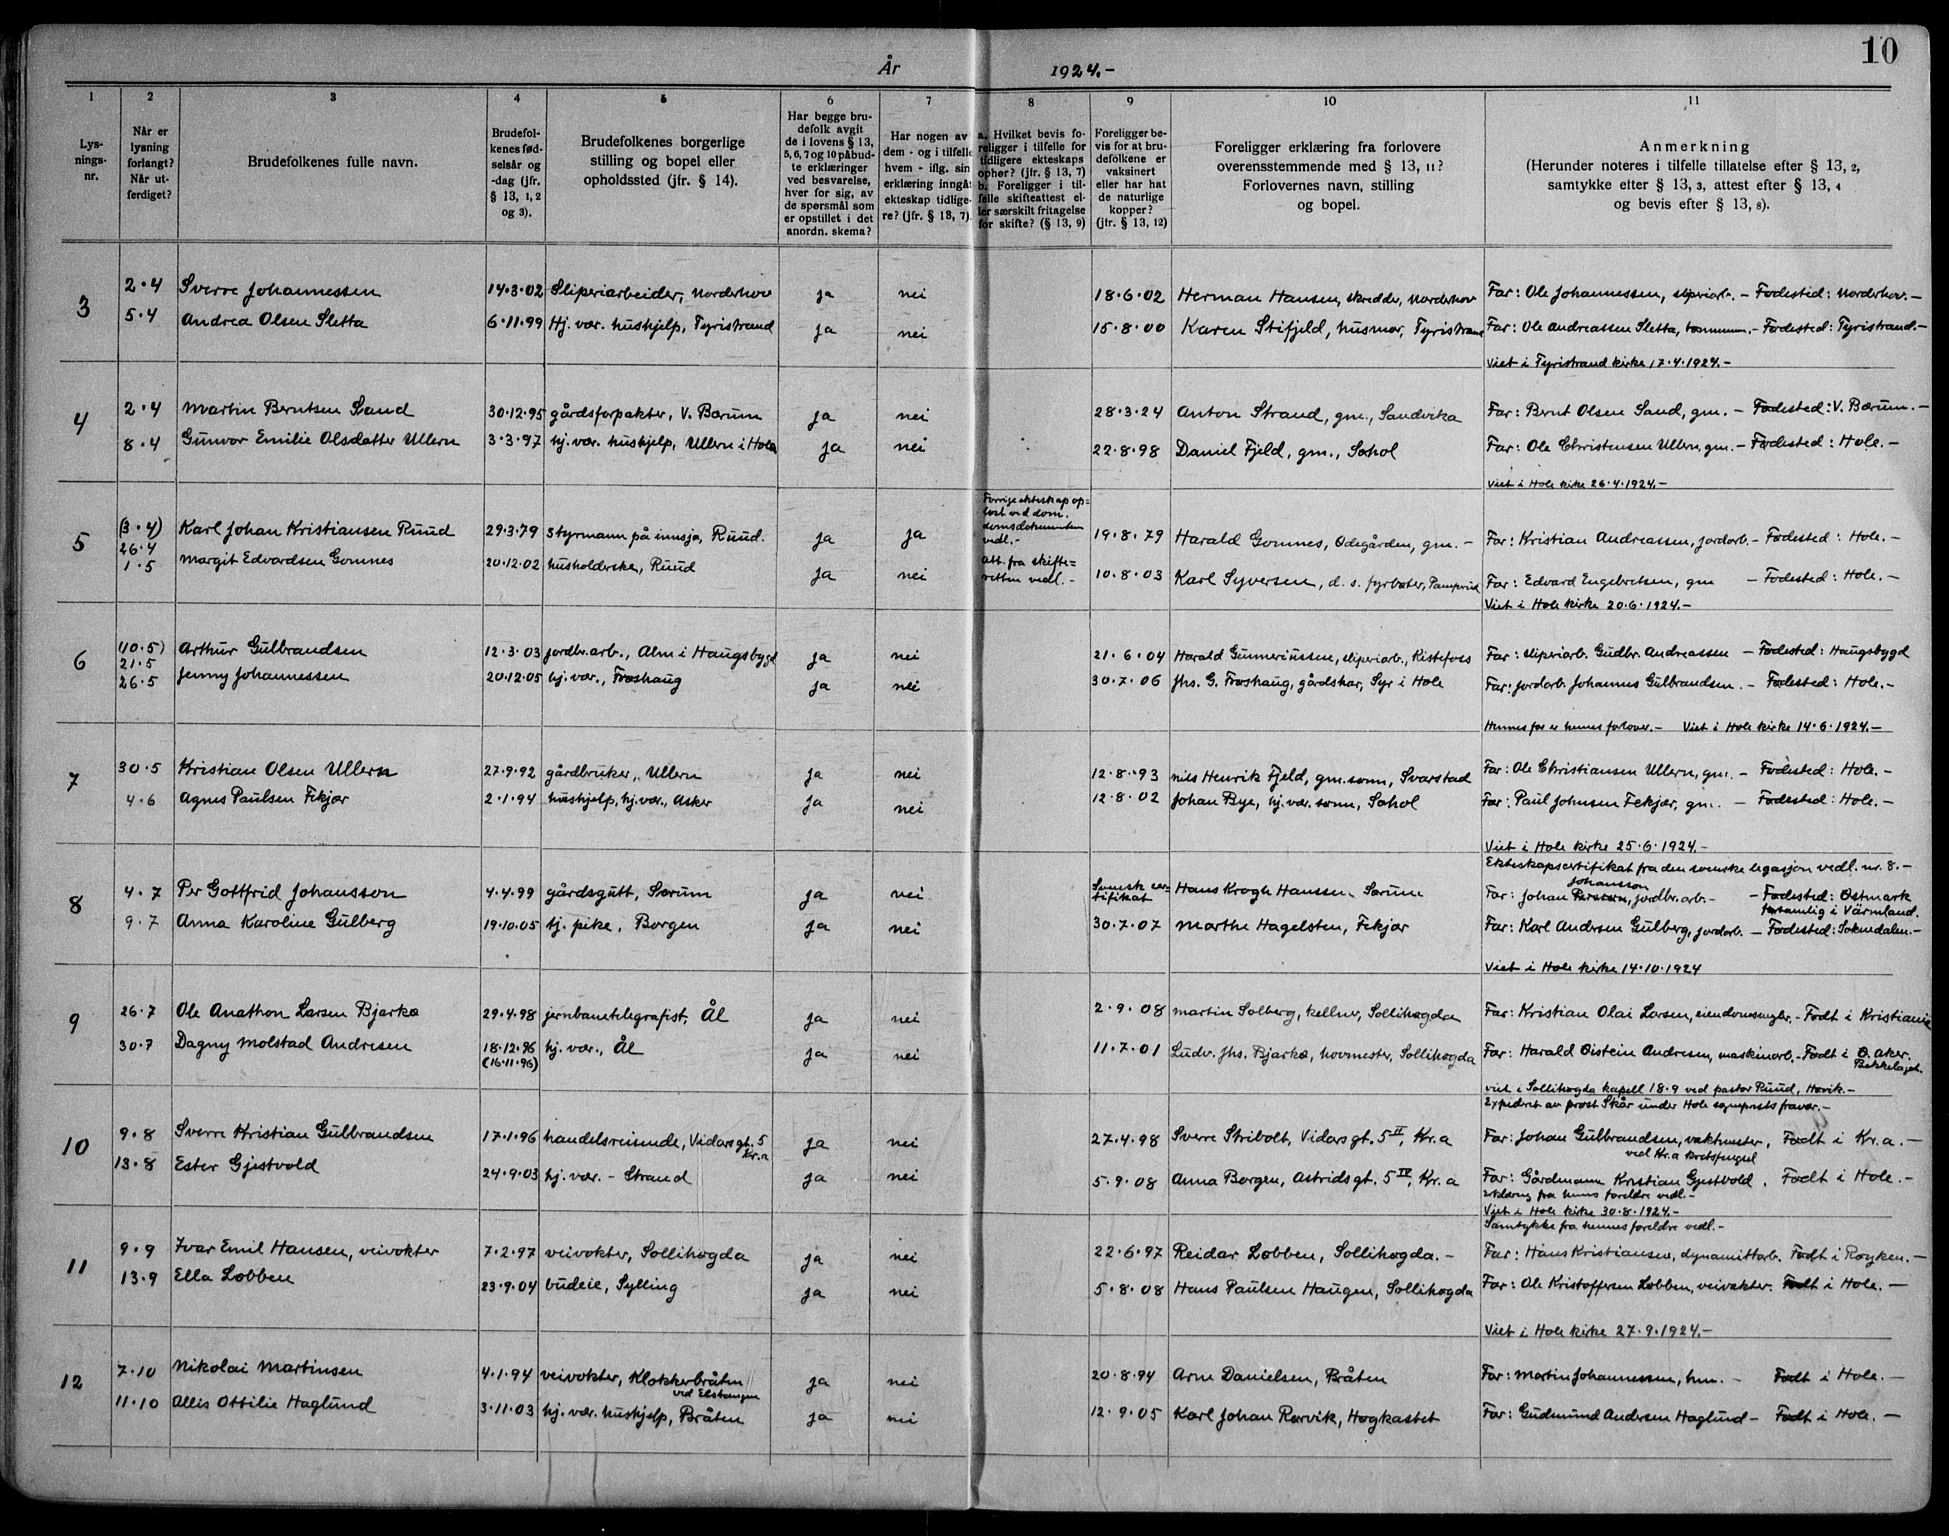 10
År 1924.-
1 2 3 4 5 6 7 8 9 10 11
Lysnings-nr.
Når er lysning forlangt? Når utferdiget?
Brudefolkenes fulle navn.
Brudefolkenes fødselsår og -dag (jfr. § 13, 1, 2 og 3).
Brudefolkenes borgerlige stilling og bopel eller opholdssted (jfr. § 14).
Har begge brudefolk avgit de i lovens § 13, 5, 6, 7 og 10 påbudte erklæringer ved besvarelse, hver for sig, av de spørsmål som er opstillet i det anordn. skema?
Har nogen av dem - og i tilfelle hvem - iflg. sin erklæring inngåt ekteskap tidligere? (jfr. § 13, 7).
a. Hvilket bevis foreligger i tilfelle for tidligere ekteskaps opher? (jfr. § 13, 7) b. Foreligger i tilfelle skifteattest eller særskilt fritagelse for skifte? (§ 13, 9)
Foreligger bevis for at brudefolkene er vaksinert eller har hat de naturlige kopper? (jfr. § 13, 12)
Foreligger erklæring fra forlovere overensstemmende med § 13, 11? Forlovernes navn, stilling og bopel.
Anmerkning (Herunder noteres i tilfelle tillatelse efter § 13, 2, samtykke efter § 13, 3, attest efter § 13, 4 og bevis efter § 13, 8).
3 2·4 Sverre Johannessen 14·3·02 Sliperiarbeider, Norderhov ja nei 18·6·02 Herman Hansen, skredder, Norderhov Far: Ole Johannessen, sliperiarb. - Fødested: Norderhov.-
5·4 Andrea Olsen Sletta 6·11·99 Hj. vær. hushjelp, Tyristrand ja nei 15·8·00 Karen Stifjeld, husmor, Tyristrand Far: Ole Andreassen Sletta, tømmerm.- Fødested: Tyristrand.-
Viet i Tyristrand kirke 17·4·1924.-
4 2·4 Martin Berntsen Sand 30·12·95 gårdsforpakter, V. Bærum ja nei 28·3·24 Anton Strand, gm., Sandvika Far: Bernt Olsen Sand, gm. - Fødested: V. Bærum.-
8·4 Gunvor Emilie Olsdatter Ullern 3·3·97 hj. vær. hushjelp, Ullern i Hole ja nei 22·8·98 Daniel Fjeld, gm., Sohol Far: Ole Christensen Ullern, gm. - Fødested: Hole.-
Viet i Hole kirke 26·4·1924.-
5 (3·4) 26·4 Karl Johan Kristiansen Ruud 29·3·79 styrmann på innsjø, Ruud. ja ja Forrige ekteskap opløst ved dom. domsdokumenten vedl.- 19·8·79 Harald Gomnes, Ødegården, gm. - Far: Kristian Andreassen, jordarb. - Fødested: Hole.-
1·5 Margit Edvardsen Gomnes 20·12·02 husholderske, Ruud ja nei att. fra skifteretten vedl.- 10·8·03 Karl Syversen, d. s. fyrbøter, Pamperud Far: Edvard Engebretsen, gm - Fødested: Hole.-
Viet i Hole kirke 20·6·1924.-
6 (10·5) 21·5 Arthur Gulbrandsen 12·3·03 jordbr.arb., Alm i Haugsbygd ja nei 21·6·04 Harald Gunneriussen, sliperiarb., Ristefoss Far: sliperiarb. Gudbr. Andreassen - Fødested: Haugsbygd
26·5 Jenny Johannessen 20·12·05 hj. vær., Frøshaug ja nei 30·7·06 Jhs. G. Frøshaug, gårdskar, Syr i Hole Far: jordarb. Johannes Gulbrandsen.- Fødested: Hole.-
Hennes far er hennes forlover.- Viet i Hole kirke 14·6·1924.-
7 30·5 Kristian Olsen Ullern 27·9·92 gårdbruker, Ullern ja nei 12·8·93 Nils Henrik Fjeld, gm. sønn, Svarstad Far: Ole Christiansen Ullern, gm. - Fødested: Hole.-
4·6 Agnes Paulsen Fekjær 2·1·94 hushjelp, hj. vær., Asker ja nei 12·8·02 Johan Bye, hj. vær. sønn, Sohol Far: Paul Johnsen Fekjær, gm. - Fødested: Hole.-
Viet i Hole kirke 25·6·1924.-
Ekteskapscertifikat fra den svenske legasjon vedl. nr. 8.-
8 4·7 Per Gottfrid Johansson 4·4·99 gårdsgutt, Sørum ja nei Svensk certifikat Hans Krogh Hanssen, Sørum Far: Johan Persson Johansson, jordbr.arb.- - Fødested: Østmark forsamlig i Värmland.
9·7 Anna Karoline Gulberg 19·10·05 hj. pike, Borgen ja nei 30·7·07 Marthe Hagelsten, Fekjær Far: Karl Andersen Gulberg, jordarb. - Fødested: Soknedalen.-
Viet i Hole kirke 14·10·1924
9 26·7 Ole Anathon Larsen Bjarkø 29·4·98 jernbanetelegrafist, Ål ja nei 2·9·08 Martin Solberg, kellner, Sollihøgda Far: Kristian Olai Larsen, eiendomsmegler.- Født i Kristiania
30·7 Dagny Molstad Andresen 18·12·96 (16·11·96) hj. vær., Ål ja nei 11·7·01 Ludv. Jhs. Bjarkø, hovmester, Sollihøgda Far: Harald Øistein Andresen, maskinarb.- Født i Ø. Aker. Bekkelaget.
viet i Sollihøgda kapell 18·9 ved pastor Ruud, Høvik.-
Expederet av prost Skår under Hole sogneprests fravær.-
10 9·8 Sverre Kristian Gulbrandsen 17·1·96 handelsreisende, Vidarsgt. 5 Kr.a ja nei 27·4·98 Sverre Stribolt, Vidarsgt. 5 II, Kr.a Far: Johan Gulbrandsen, vaktmester, ved Kr.a kretsfengsel Født i Kr.a.-
13·8 Ester Gjestvold 24·9·03 hj. vær. - Strand ja nei 5·9·08 Anna Borgen, Astridsgt. 5 IV, Kr.a Far: Gårdmann Kristian Gjestvold. Født i Hole.-
erklæring fra hennes foreldre vedl.-
Viet i Hole kirke 30·8·1924.-
Samtykke fra hennes foreldre vedl.-
11 9·9 Ivar Emil Hansen, veivokter 7·2·97 veivokter, Sollihøgda ja nei 22·6·97 Reidar Løbben, Sollihøgda.- Far: Hans Kristiansen, dynamittarb. Født i Røyken.-
13·9 Ella Løbben 23·9·04 budeie, Sylling ja nei 5·8·08 Hans Paulsen Haugen, Sollihøgda Far: Ole Kristoffersen Løbben, veivokter. Født i Hole.-
Viet i Hole kirke 27·9·1924.-
12 7·10 Nikolai Martinsen 4·1·94 veivokter, Klokkerbråten ved Elstangen ja nei 20·8·94 Arne Danielsen, Bråten Far: Martin Johannessen, hm. - Født i Hole.-
11·10 Allis Ottilie Haglund 3·11·03 hj. vær. hushjelp, Bråten ja nei 12·9·05 Karl Johan Rørvik, Høgkastet Far: Gudmund Andersen Haglund - Født i Hole.-